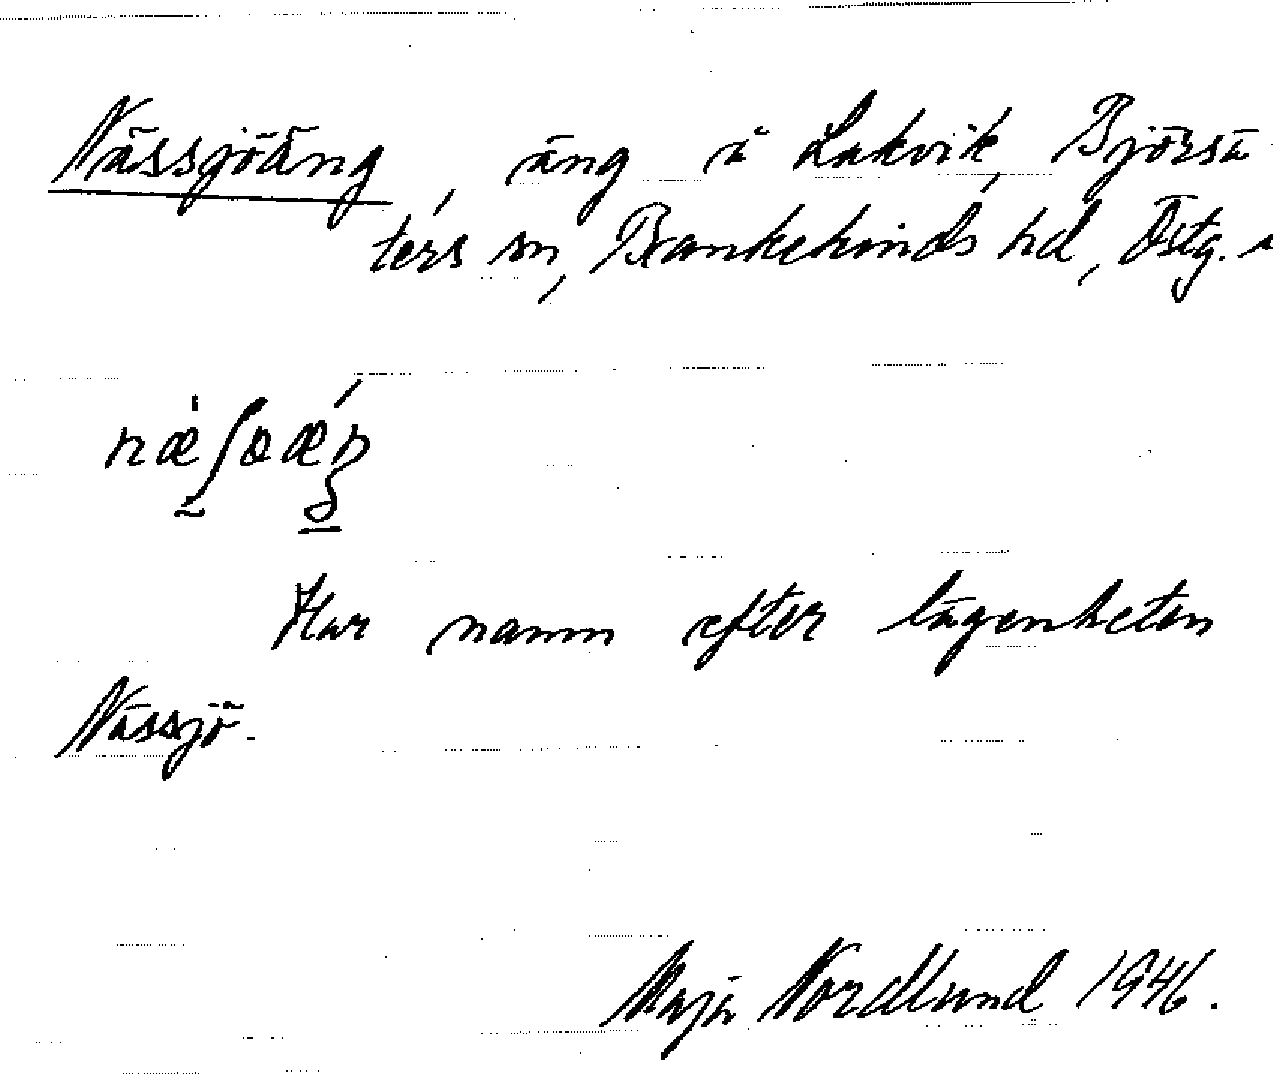 Nässjöäng, äng å Lakvik, Bjørsä
ters sn, Bankekinds hd, Östg.
Har namn efter lägenheten
Nässjö.
Maja Nordlund 1946.